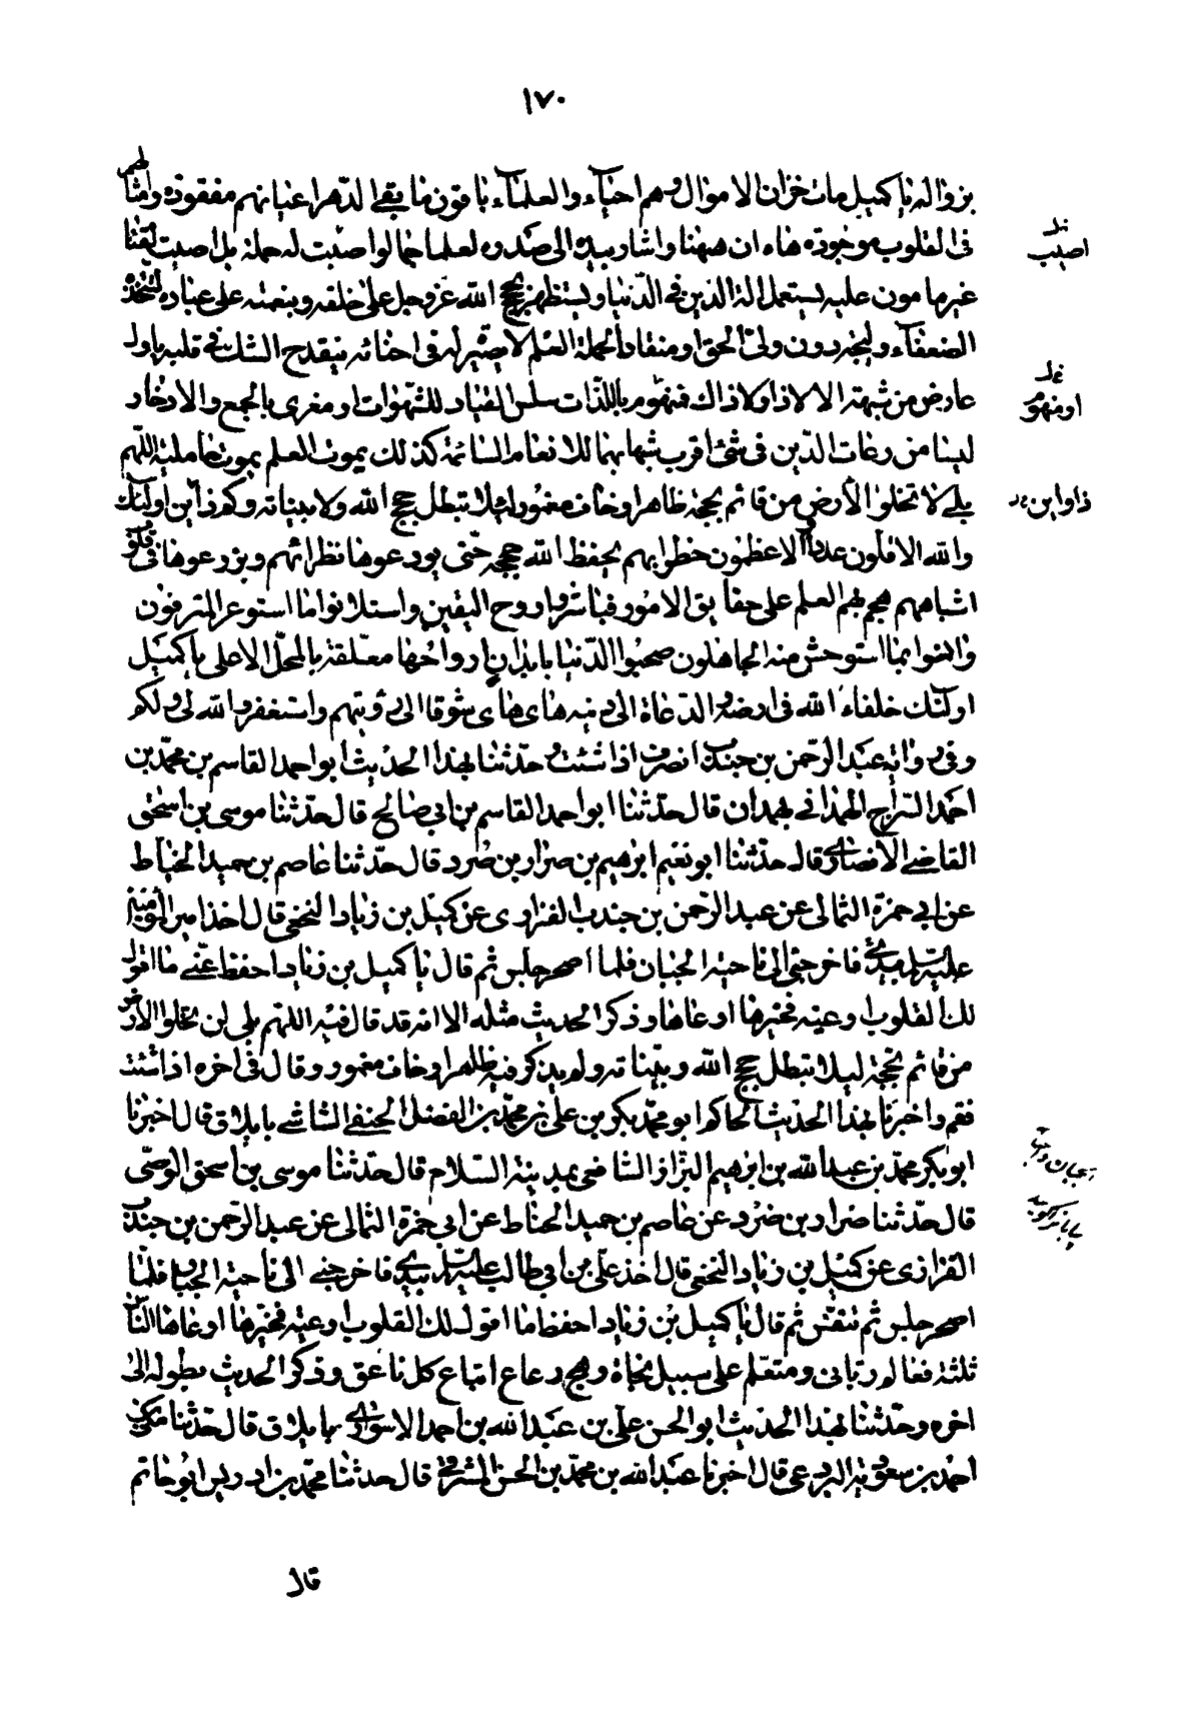 ١٧٠
بزواله يا كميل مات خزان الاموال وهم احياء والعلماء باقون ما بقى الدهر اعيانهم مفقودة وامثالهم
فى القلوب موجودة هاه ان ههنا واشار بيده الى صدره لعلما جما لو اصبت له حملة بل اصبت لقنا
غير مامون عليه يستعمل الة الدين فى الدنيا ويستظهر بحجج الله عز وجل على خلقه وبنعمه على عباده ليتخذه
الضعفاء وليجة دون ولى الحق او منقادا لحملة العلم لا بصيرة له فى احنائه ينقدح الشك فى قلبه باول
عارض من شبهة الا لا ذا ولا ذاك فمنهوم باللذات سلس القياد للشهوات او مغرى بالجمع والادخار
ليسا من رعات الدين فى شئ اقرب شبها بهما للانعام السائمة كذلك يموت العلم بموت حامليه اللهم
بلى لا تخلوا الأرض من قائم بحجة ظاهر او خاف مغمور لئلا تبطل حجج الله ولا بيناته وكم ذا واين اولئك
والله الاقلون عددا والاعظمون خطرا بهم يحفظ الله حججه حتى يودعوها نظرائهم ويزرعوها فى قلوب
اشباههم هجم بهم العلم على حقايق الامور فباشروا روح اليقين واستلانوا ما استوعر المترفون
وانسوا بما استوحش منه الجاهلون صحبوا الدنيا بابدان ارواحها معلقة بالمحل الاعلى يا كميل
اولئك خلفاء الله فى ارضه والدعاة الى دينه هاى هاى شوقا الى رؤيتهم واستغفر الله لى ولكم
وفى رواية عبد الرحمن بن جندب انصرف اذا شئت وحدثنا بهذا الحديث ابو احمد القاسم بن محمد بن
احمد السراج الهمدانى بهمدان قال حدثنا ابو احمد القاسم بن ابى صالح قال حدثنا موسى بن اسحق
القاضى الانصارى قال حدثنا ابو نعيم ابرهيم بن ضرار بن صرد قال حدثنا عاصم بن حميد الحناط
عن ابى حمزة الثمالى عن عبد الرحمن بن جندب الفزارى عن كميل بن زياد النخعى قال اخذ امير المؤمنين
عليه السلم بيدى فاخرجنى الى ناحية الجبان فلما اصحر جلس ثم قال يا كميل بن زياد احفظ عنى ما اقول
لك القلوب اوعية فخيرها اوعاها وذكر الحديث مثله الا انه قد قال فيه اللهم بلى لن تخلوا الأرض
من قائم بحجة ليلا تبطل حجج الله وبيناته ولم يذكر فيه ظاهر او خاف مغمور وقال فى اخره اذا شئت
فقم واخبرنا بهذا الحديث الحاكم ابو محمد بكر بن على بن محمد بن الفضل الحنفى الشاشى بايلاق قال اخبرنا
ابو بكر محمد بن عبدالله بن ابرهيم البزاز الشافعى بمدينة السلام قال حدثنا موسى بن اسحق الوصى
قال حدثنا ضرار بن ضرد عن عاصم بن حميد الحناط عن ابى حمزة الثمالى عن عبد الرحمن بن جندب
الفزارى عن كميل بن زياد النخعى قال اخذ على بن ابى طالب عليه السلم بيدى فاخرجنى الى ناحية الجبان فلما
اصحر جلس ثم تنفس ثم قال يا كميل بن زياد احفظ ما اقول لك القلوب اوعية فخيرها اوعاها الناس
ثلثة فعالم ربانى ومتعلم على سبيل نجاة وهمج رعاع اتباع كل ناعق وذكر الحديث بطوله الى
اخره وحدثنا بهذا الحديث ابو الحسن على بن عبدالله بن احمد الاسوارى بايلاق قال حدثنا مكى بن
احمد بن سعدويه البردعى قال اخبرنا عبدالله بن محمد بن الحسن المشرقى قال حدثنا محمد بن ادريس ابو حاتم
قال
اصيب
او منهوم
ذا واين